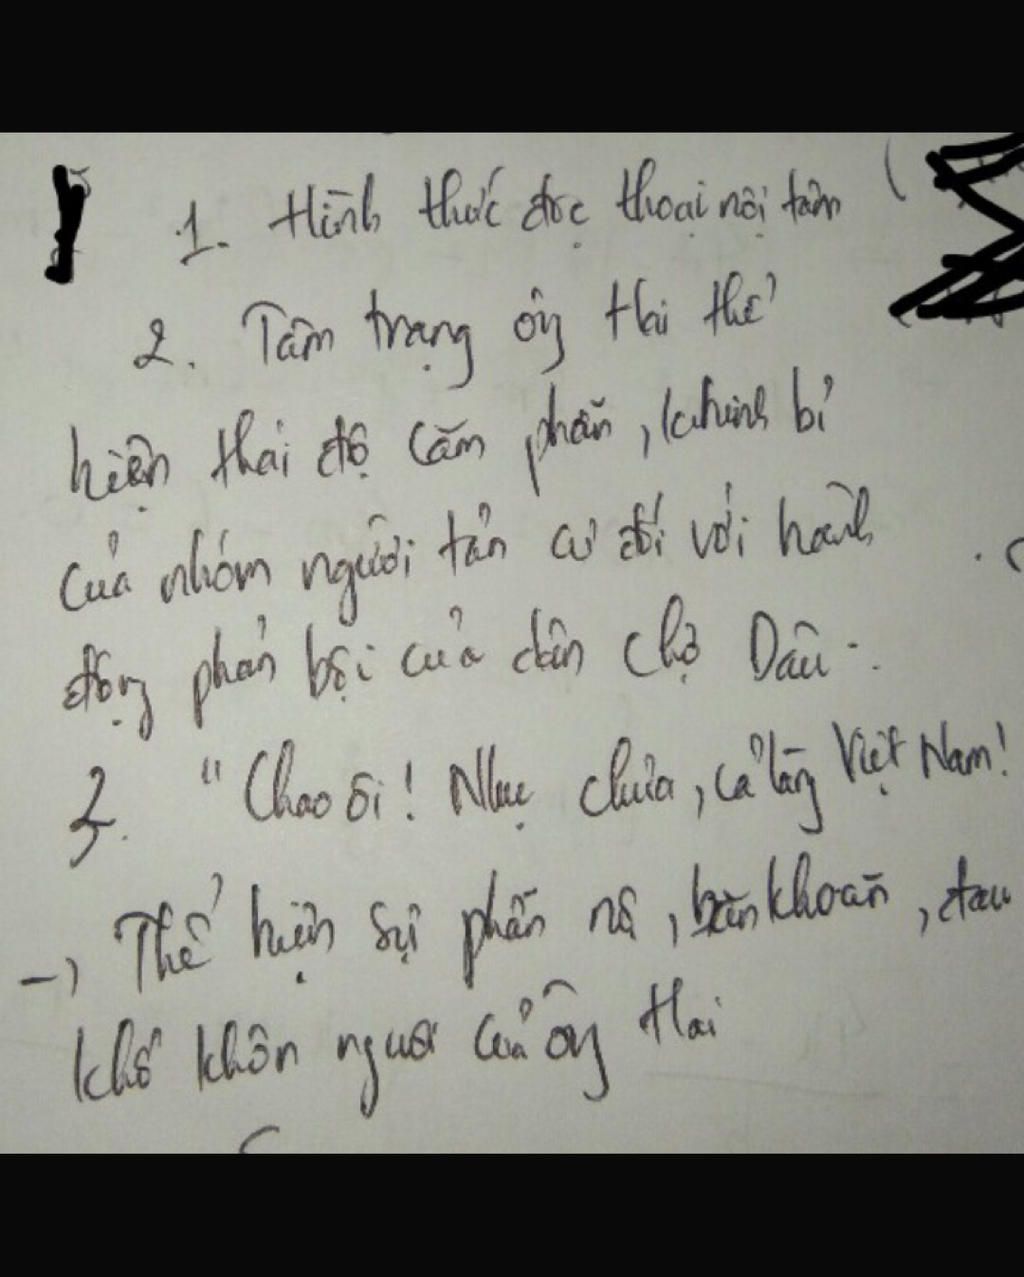 1. Hình thức độc thoại nội tâm (
2. Tâm trạng ông Hai thể
hiện thái độ căm phẫn, khinh bỉ
của nhóm người tản cư đối với hành
động phản bội của dân Chợ Dầu.
3. "Chao ôi! Nhục chưa, cả làng Việt Nam!
→ Thể hiện sự phẫn nộ, băn khoăn, đau
khổ khôn nguôi của ông Hai